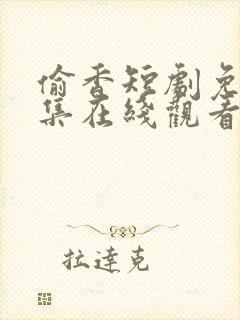 偷香短劇免
集在綫觀看
拉達克